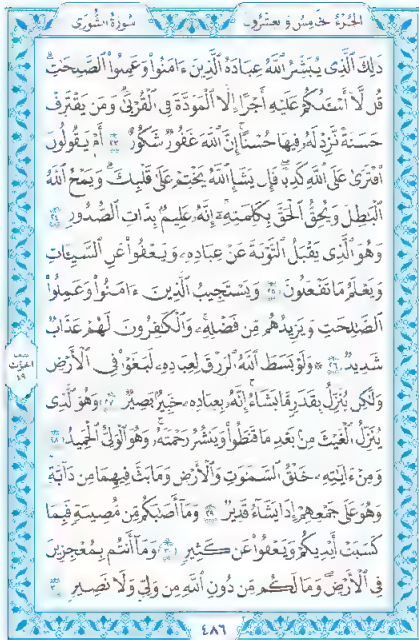 سورة الشورى
الجزء خمس وعشرون
ذَٰلِكَ ٱلَّذِى يُبَشِّرُ ٱللَّهُ عِبَادَهُ ٱلَّذِينَ ءَامَنُوا۟ وَعَمِلُوا۟ ٱلصَّٰلِحَٰتِ
قُل لَّآ أَسْـَٔلُكُمْ عَلَيْهِ أَجْرًا إِلَّا ٱلْمَوَدَّةَ فِى ٱلْقُرْبَىٰ وَمَن يَقْتَرِفْ
حَسَنَةً نَّزِدْ لَهُۥ فِيهَا حُسْنًا إِنَّ ٱللَّهَ غَفُورٌ شَكُورٌ ٢٣ أَمْ يَقُولُونَ
ٱفْتَرَىٰ عَلَى ٱللَّهِ كَذِبًا فَإِن يَشَإِ ٱللَّهُ يَخْتِمْ عَلَىٰ قَلْبِكَ وَيَمْحُ ٱللَّهُ
ٱلْبَٰطِلَ وَيُحِقُّ ٱلْحَقَّ بِكَلِمَٰتِهِۦٓ إِنَّهُۥ عَلِيمٌۢ بِذَاتِ ٱلصُّدُورِ ٢٤
وَهُوَ ٱلَّذِى يَقْبَلُ ٱلتَّوْبَةَ عَنْ عِبَادِهِۦ وَيَعْفُوا۟ عَنِ ٱلسَّيِّـَٔاتِ
وَيَعْلَمُ مَا تَفْعَلُونَ ٢٥ وَيَسْتَجِيبُ ٱلَّذِينَ ءَامَنُوا۟ وَعَمِلُوا۟
ٱلصَّٰلِحَٰتِ وَيَزِيدُهُم مِّن فَضْلِهِۦ وَٱلْكَٰفِرُونَ لَهُمْ عَذَابٌ
شَدِيدٌ ٢٦ ۞ وَلَوْ بَسَطَ ٱللَّهُ ٱلرِّزْقَ لِعِبَادِهِۦ لَبَغَوْا۟ فِى ٱلْأَرْضِ
وَلَٰكِن يُنَزِّلُ بِقَدَرٍ مَّا يَشَآءُ إِنَّهُۥ بِعِبَادِهِۦ خَبِيرٌۢ بَصِيرٌ ٢٧ وَهُوَ ٱلَّذِى
يُنَزِّلُ ٱلْغَيْثَ مِنۢ بَعْدِ مَا قَنَطُوا۟ وَيَنشُرُ رَحْمَتَهُۥ وَهُوَ ٱلْوَلِىُّ ٱلْحَمِيدُ ٢٨
وَمِنْ ءَايَٰتِهِۦ خَلْقُ ٱلسَّمَٰوَٰتِ وَٱلْأَرْضِ وَمَا بَثَّ فِيهِمَا مِن دَآبَّةٍ
وَهُوَ عَلَىٰ جَمْعِهِمْ إِذَا يَشَآءُ قَدِيرٌ ٢٩ وَمَآ أَصَٰبَكُم مِّن مُّصِيبَةٍ فَبِمَا
كَسَبَتْ أَيْدِيكُمْ وَيَعْفُوا۟ عَن كَثِيرٍ ٣٠ وَمَآ أَنتُم بِمُعْجِزِينَ
فِى ٱلْأَرْضِ وَمَا لَكُم مِّن دُونِ ٱللَّهِ مِن وَلِىٍّ وَلَا نَصِيرٍ ٣١
الحزب
٤٩
٤٨٦